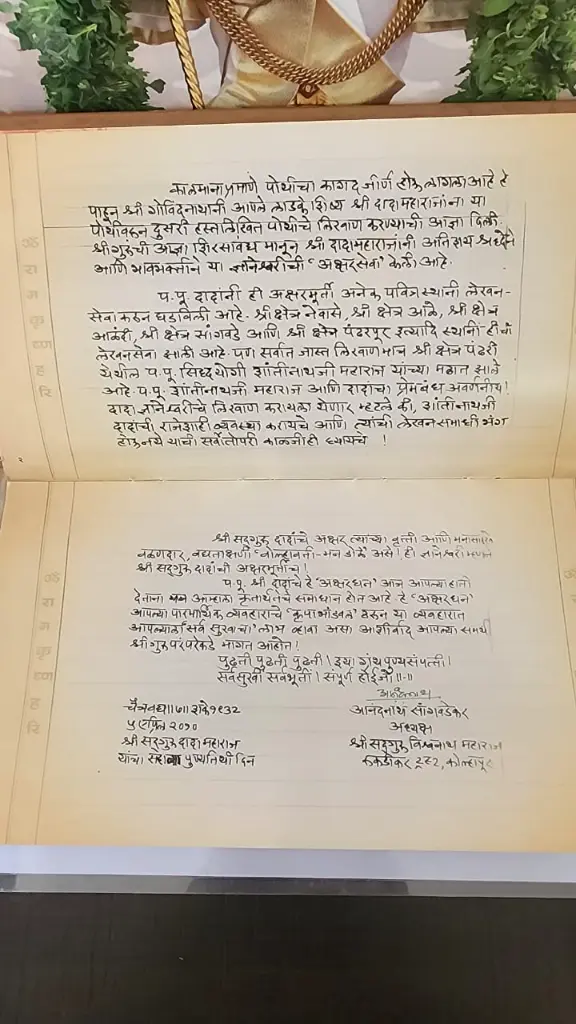 कालमानाप्रमाणे पोथीचा कागद जीर्ण होऊ लागला आहे हे
पाहून श्री गोविंदनाथांनी आपले लाडके शिष्य श्री दादामहाराजांना या
पोथीवरून दुसरी हस्तलिखित पोथीचे लिखाण करण्याची आज्ञा दिली.
श्रीगुरुंची आज्ञा शिरसावंद्य मानून श्री दादामहाराजांनी अतिशय श्रद्धेने
आणि भावभक्तीने या ज्ञानेश्वरीची 'अक्षरसेवा' केली आहे.
प.पू. दादांनी ही अक्षरमूर्ती अनेक पवित्र स्थानी लेखन-
सेवा करून घडविली आहे. श्री क्षेत्र नेवासे, श्री क्षेत्र आळे, श्री क्षेत्र
आळंदी, श्री क्षेत्र सांगवडे आणि श्री क्षेत्र पंढरपूर इत्यादि स्थानी ही
लेखनसेवा झाली आहे. पण सर्वात जास्त लिखाण मात्र श्री क्षेत्र पंढरी
येथील प.पू. सिद्धयोगी शांतीनाथजी महाराज यांच्या मठात झाले
आहे. प.पू. शांतीनाथजी महाराज आणि दादांचा प्रेमबंध अवर्णनीय!
दादा ज्ञानेश्वरीचे लिखाण करायला येणार म्हटले की, शांतीनाथजी
दादांची राजेशाही व्यवस्था करायचे आणि त्यांची लेखनसमाधी भंग
होऊ नये याची सर्वतोपरी काळजीही घ्यायचे !
२
ॐ
रा
म
कृ
ष्ण
ह
रि
श्री सद्गुरु दादांचे अक्षर त्यांच्या वृत्ती आणि
वळणदार, बघताक्षणी 'वोल्हावती-मन डोले असे! ही ज्ञानेश्वरी म्हणजे
श्री सद्गुरु दादांची अक्षरमूर्तीच!
प.पू. श्री दादांचे हे 'अक्षरधन' आज आपल्या हाती
देताना आम्हाला कृतार्थतेचे समाधान होत आहे. हे 'अक्षरधन'
आपल्या पारमार्थिक व्यवहाराचे 'कृपाभांडवल' ठरून या व्यवहारात
आपल्याला 'सर्व सुखाचा' लाभ व्हावा असा आशीर्वाद आपल्या समर्थ
श्रीगुरुपरंपरेकडे मागत आहोत!
पुढती पुढती पुढती। इया ग्रंथपुण्यसंपत्ती।
सर्वसुखी सर्वभूती। संपूर्ण होईजे॥-॥
चैत्रवद्य॥७॥ शके १९३२
५ एप्रिल २०१०
श्री सद्गुरु दादा महाराज
यांचा पुण्यतिथी दिन
आनंदनाथ सांगवडेकर
अध्यक्ष
श्री सद्गुरु विश्वनाथ महाराज
रुकडीकर ट्रस्ट, कोल्हापूर
ॐ
रा
म
कृ
ष्ण
ह
रि